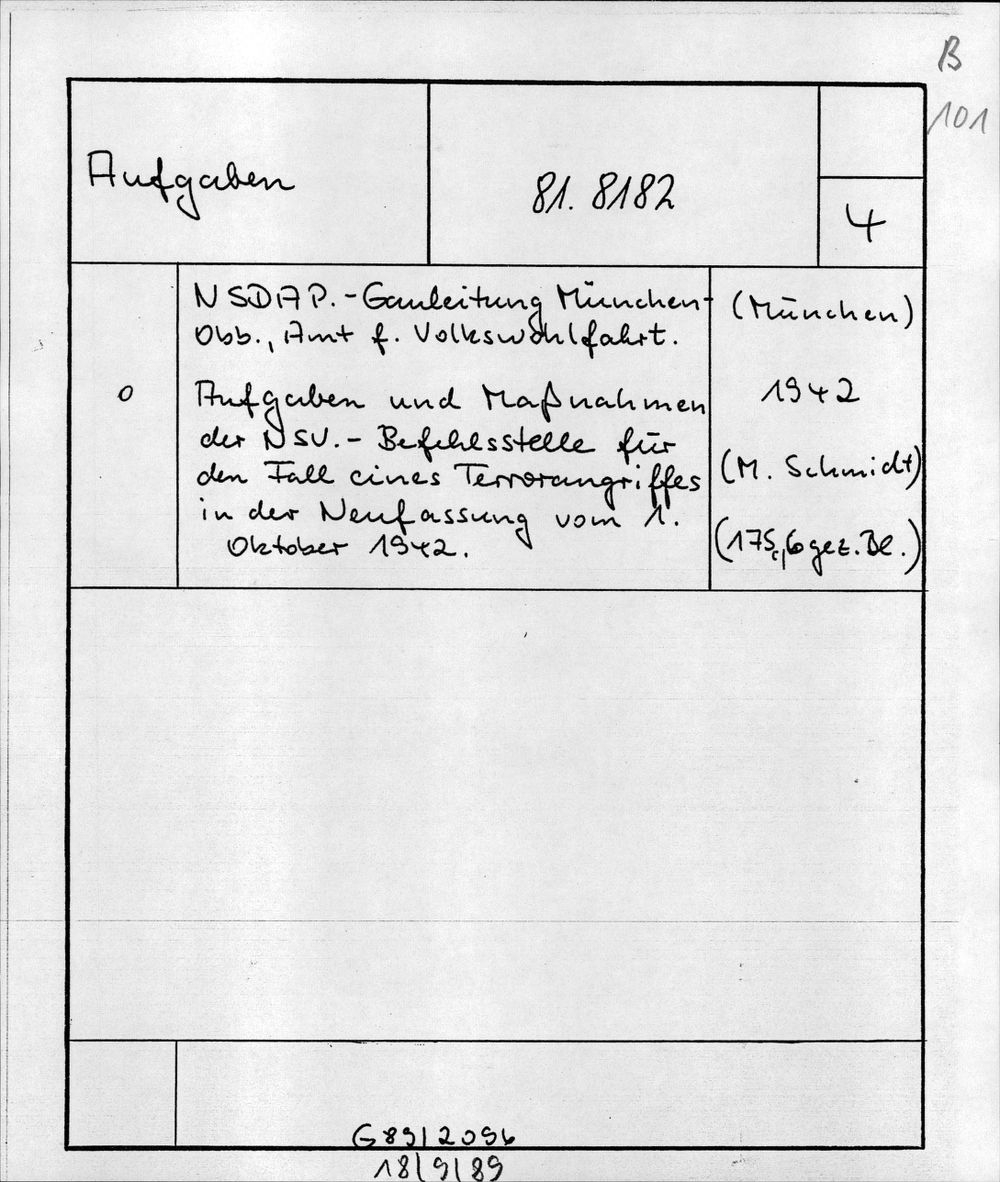 B
101
Aufgaben
81. 8182
4
NSDAP.-Gauleitung München-
Obb., Amt f. Volkswohlfahrt.
(München)
o
Aufgaben und Maßnahmen
der NSV.- Befehlsstelle für
den Fall eines Terrorangriffes
in der Neufassung vom 1.
Oktober 1942.
1942
(M. Schmidt)
gez. Bl.)
G 89/2096
18/9/89